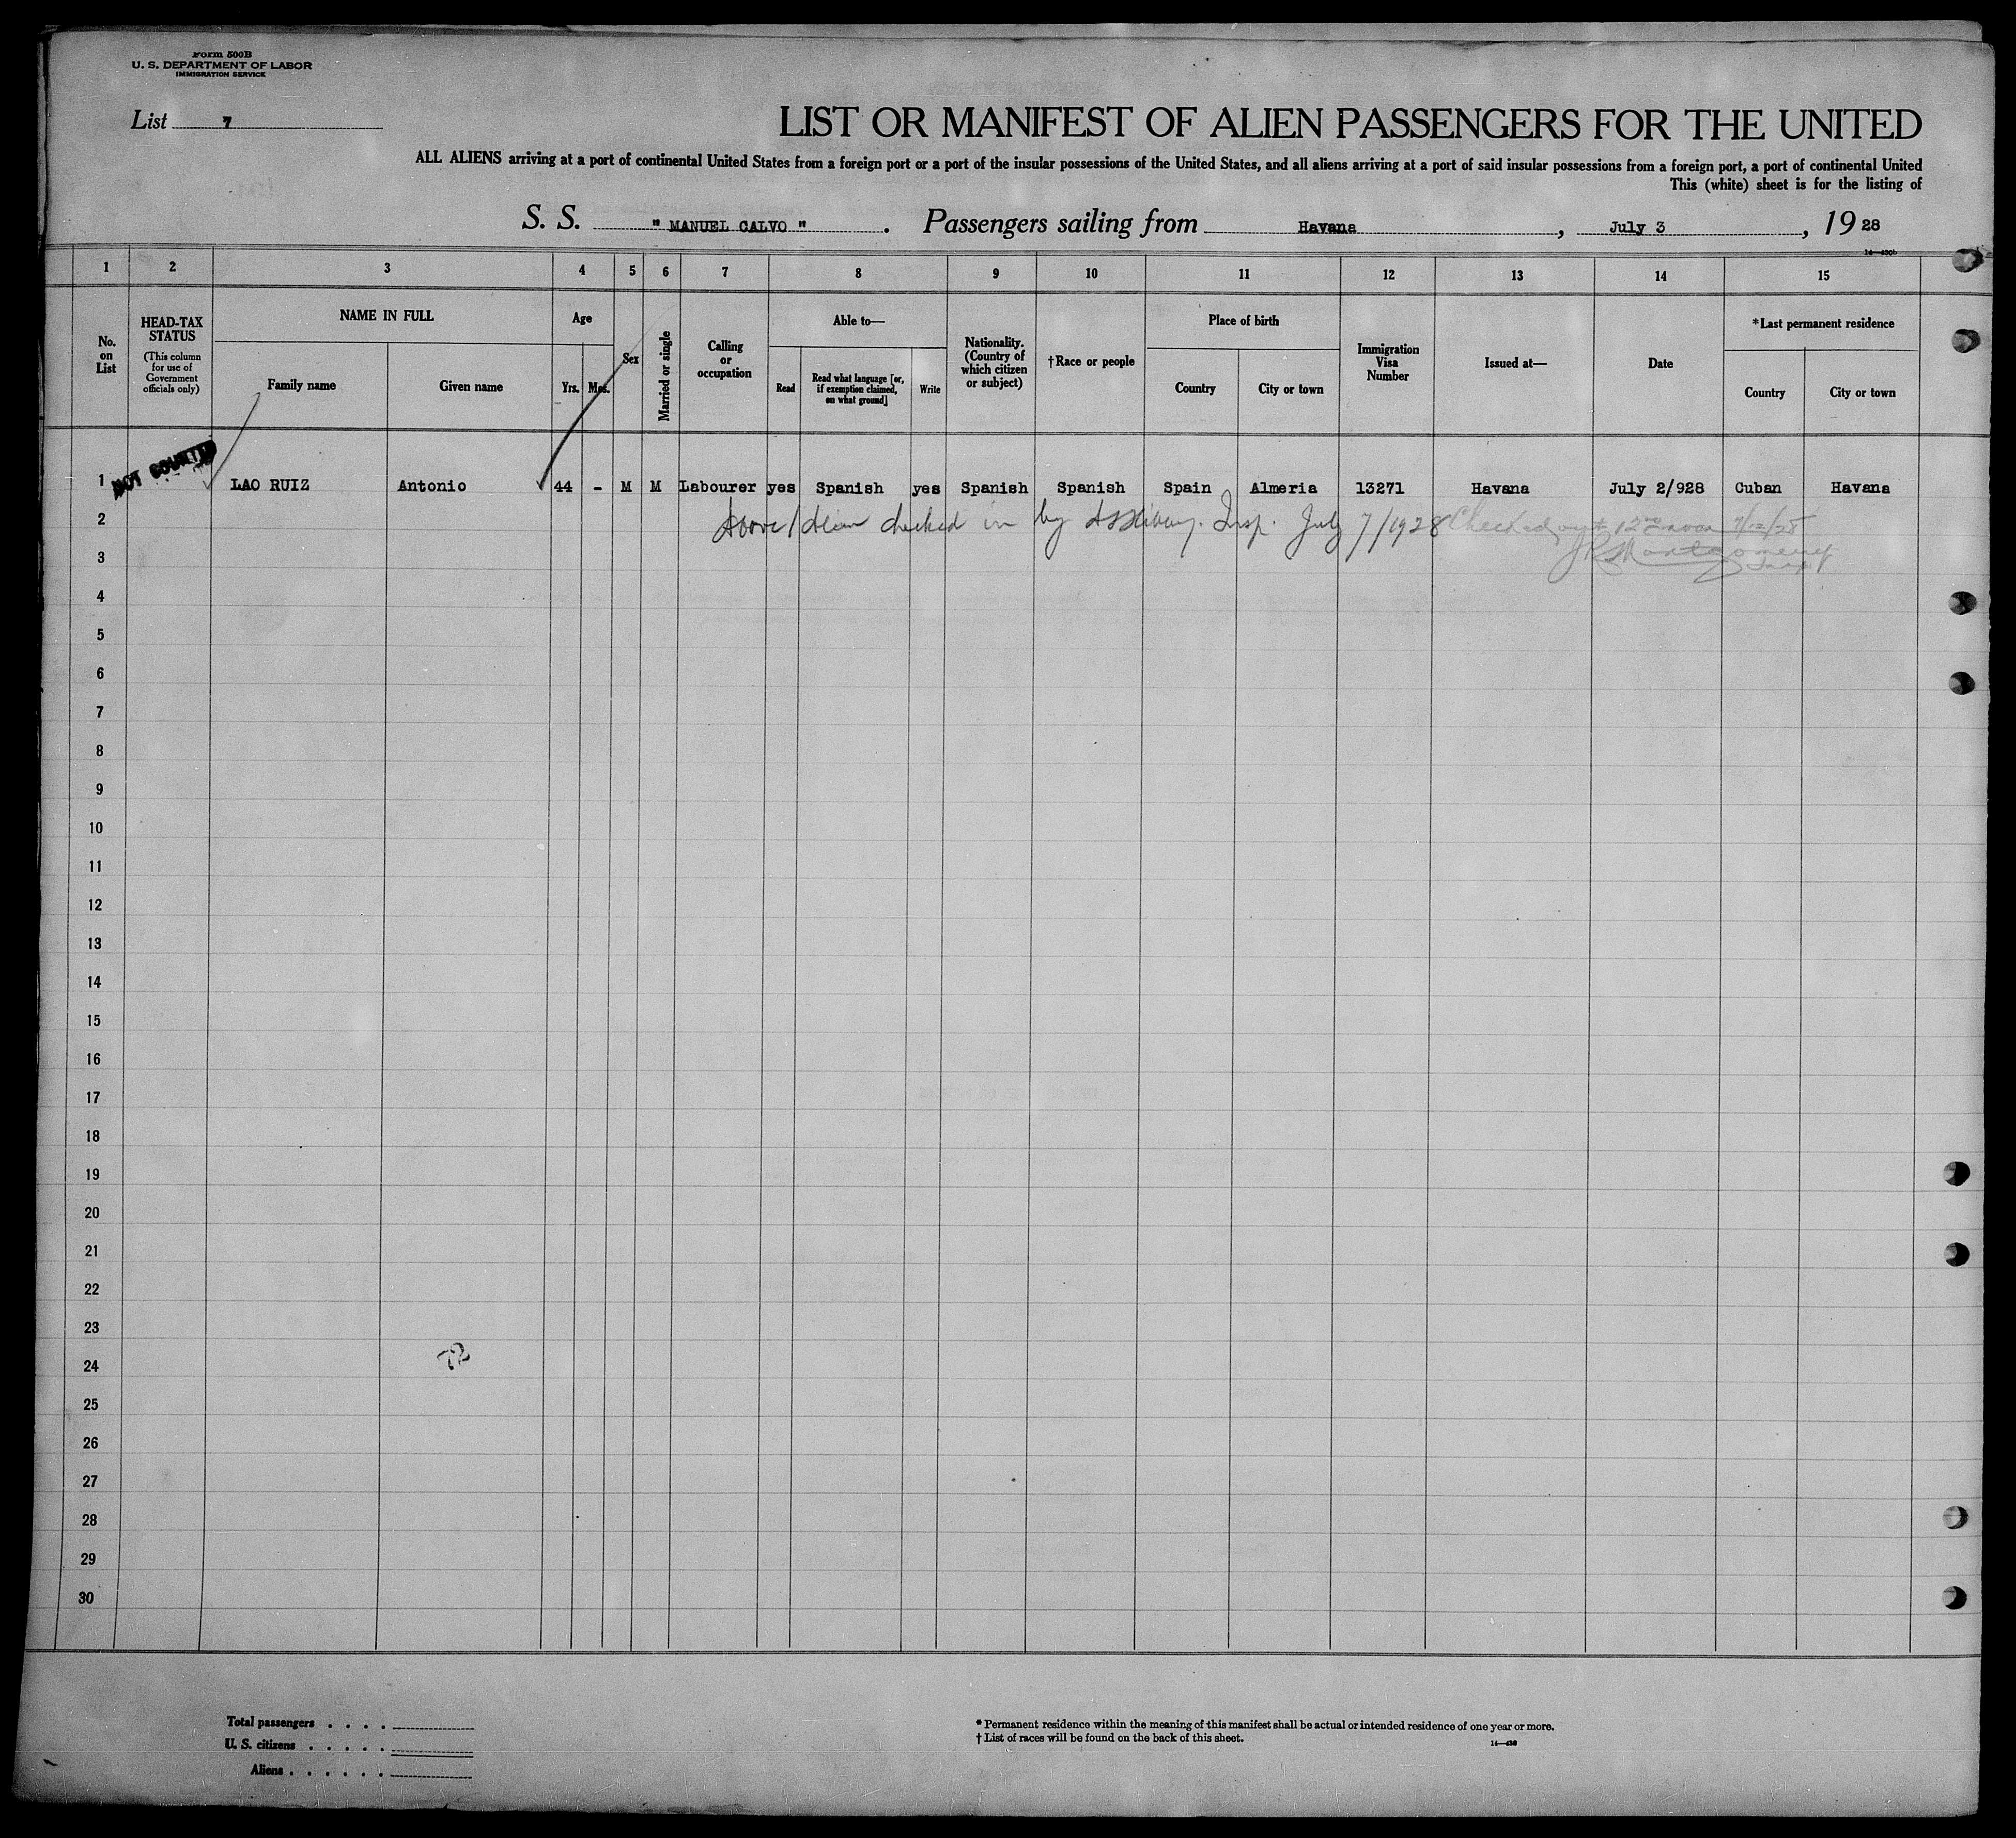 Form 500B
U. S. DEPARTMENT OF LABOR
IMMIGRATION SERVICE
List 7
LIST OR MANIFEST OF ALIEN PASSENGERS FOR THE UNITED
ALL ALIENS arriving at a port of continental United States from a foreign port or a port of the insular possessions of the United States, and all aliens arriving at a port of said insular possessions from a foreign port, a port of continental United
This (white) sheet is for the listing of
S. S. " MANUEL CALVO " . Passengers sailing from Havana , July 3 , 19 28
1 2 3 4 5 6 7 8 9 10 11 12 13 14 15
No. on List
HEAD-TAX STATUS
(This column for use of Government officials only)
NAME IN FULL
Family name
Given name
Age
Yrs. Mos.
Sex
Married or single
Calling or occupation
Able to—
Read
Read what language [or, if exemption claimed, on what ground]
Write
Nationality. (Country of which citizen or subject)
†Race or people
Place of birth
Country
City or town
Immigration Visa Number
Issued at—
Date
*Last permanent residence
Country
City or town
NOT COUNTED
1 LAO RUIZ Antonio 44 - M M Labourer yes Spanish yes Spanish Spanish Spain Almeria 13271 Havana July 2/928 Cuban Havana
2 Above alien checked in by Insp. July 7/1928 Checked out 12 noon 7/12/28
3 Montgomery
Insp
4
5
6
7
8
9
10
11
12
13
14
15
16
17
18
19
20
21
22
23
72
24
25
26
27
28
29
30
Total passengers . . . .
U. S. citizens . . . . .
Aliens . . . . . .
* Permanent residence within the meaning of this manifest shall be actual or intended residence of one year or more.
† List of races will be found on the back of this sheet.